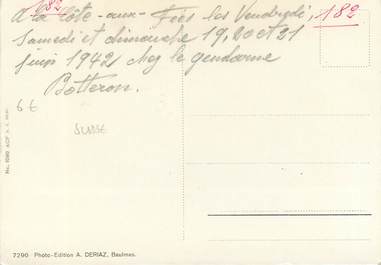 182
à la Côte-aux-Fées les Vendredi, 182
Samedi et dimanche 19, 20 et 21
juin 1942 chez le gendarme
Botteron.
6 €
SUISSE
7290 Photo-Edition A. DERIAZ, Baulmes.